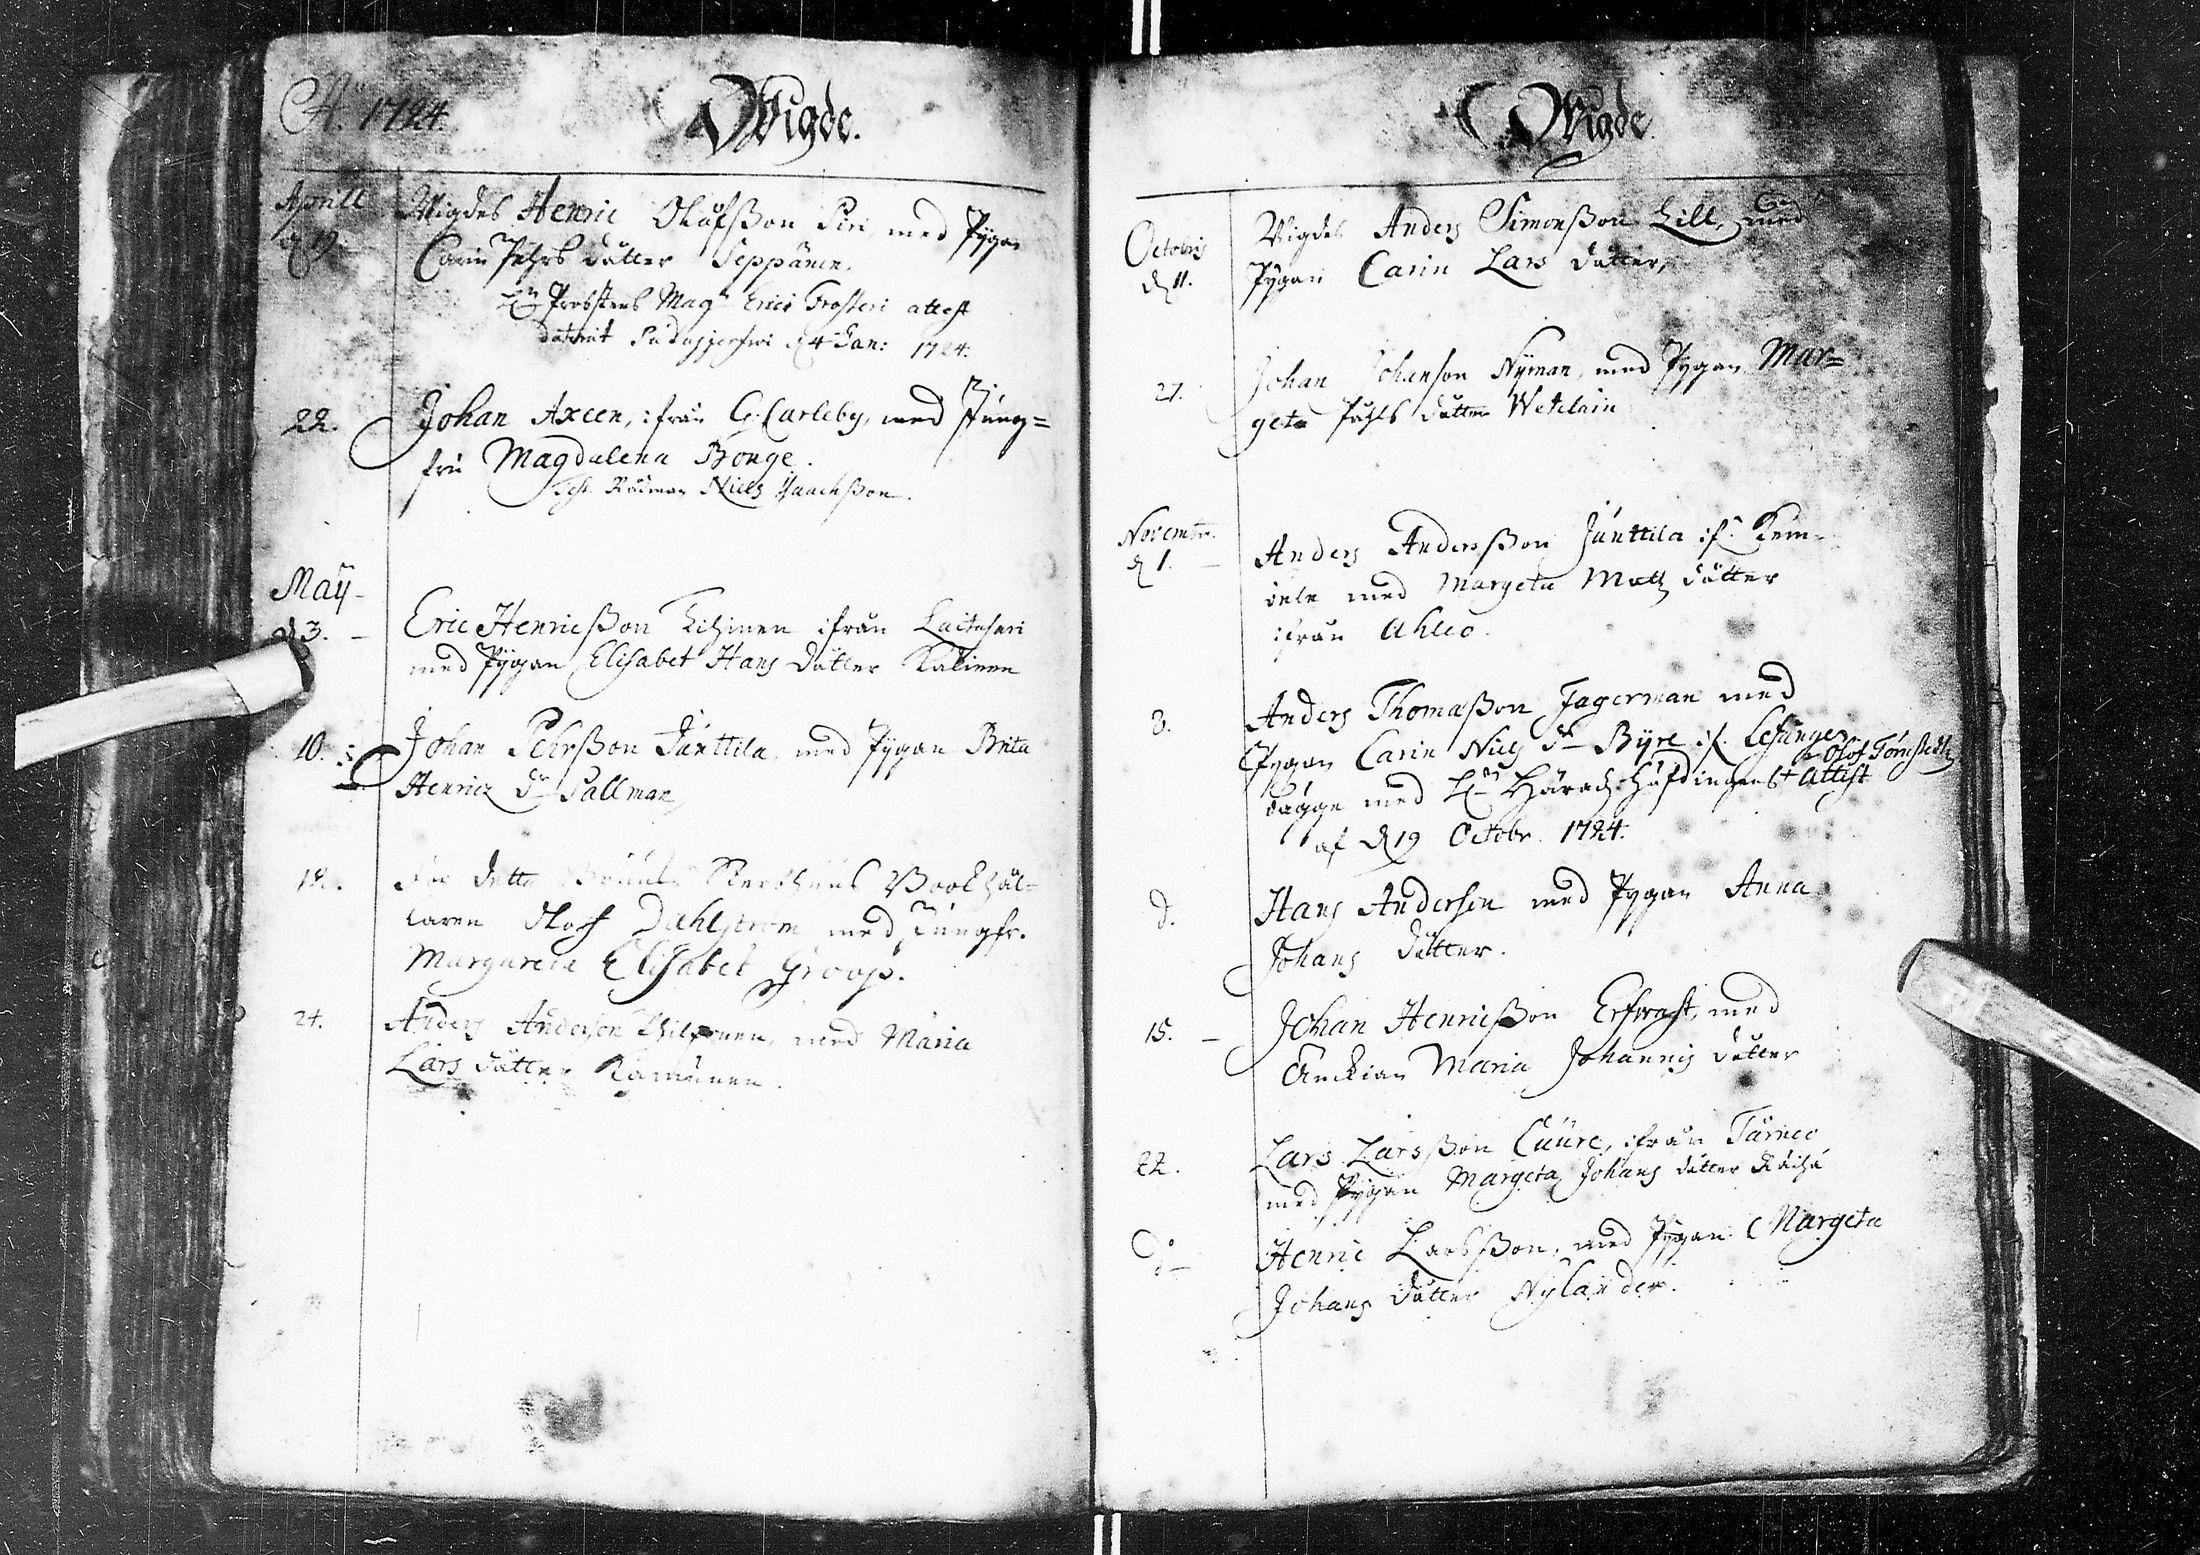 A:o 1724.
Wigde.
Aprill
d 19.
Wigdes Henric Olufsson Piri, med Pygan
Carin Pehrs dåtter Seppänen.
H:r Probstens Mag:r Erici Frosteri attest
daterat d 4 Jan: 1724.
22.
Johan Axeen, ifrån G. Carleby, med Jung=
fru Magdalena Bonge.
Test. Rådman Niels Isaachsson.
May
d 3.
Eric Henricsson ifrån
med Pygan Elisabet Hans dåtter
10.
Johan Pehrsson Junttila, med Pygan Brita
Henricz d:r Sallman
18.
För detta Bookhål=
laren Olof Dahlström med Jungfr.
Margareta Elisabet Groop.
24.
Anders Andersson med Maria
Lars dåtter
Wigde
Octobris
d 11.
Wigdes Anders Simonsson Lill, med
Pygan Carin Lars dåtter,
27.
Johan Johansson Nyman, med Pygan Mar=
geta Påhls dåtter Wetelain
Novembr.
d 1.
Anders Andersson Junttila if. Kem=
iele med Margeta Matz dåtter
ifrån Uhleo.
3.
Anders Thomasson Fagerman med
Pygan Carin Niels d:r Byre if. Lefånger
Olof Törnstedtz
dagge med H:r Härads Höfdingens attest
af d 19 Octobr. 1724.
d.
Hans Anderson med Pygan Anna
Johans dåtter.
15.
Johan Henricsson Erfwast, med
Enckian Maria Johannis dåtter
22.
Lars Larsson Cuure, ifrån Tårneo
med Pygan Margeta Johans dåtter
d:o
Henric Larsson, med Pygan Margeta
Johans dåtter Nylander.